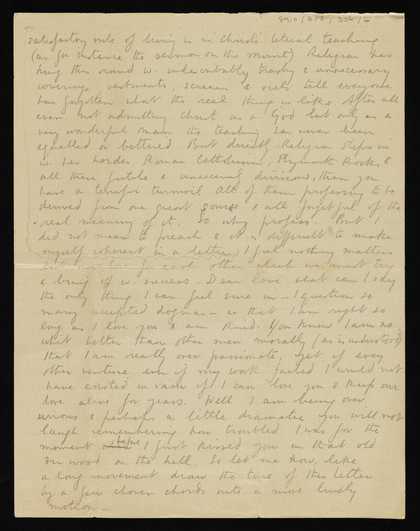 satisfactory rule of living is in Christ's actual teaching
(as for instance the sermon on the mount) Religion has
hung this round w. undoubtably heavy & unnecessary
coverings vestments, screens & veils till everyone
has forgotten what the real thing is like. After all
even not admitting Christ as a God but only as a
very wonderful man the teaching has never been
equalled or bettered But directly Religion steps in
in her hordes Roman Catholicism, Plymouth Rocks, &
all these futile & unnecessary divisions, then you
have a terrific turmoil all of them professing to be
derived from one great source & all forgetful of the
real meaning of it. So why profess. But I
did not mean to preach & it is difficult to make
myself coherent in a letter. I feel nothing matters
each other which we must try
& bring if w. success. Dear love what can I say
the only thing I can feel sure in — I question so
many accepted dogmas — is that I am right so
long as I love you & am kind. You know I am no
whit better than other men morally (as understood)
that I am really over passionate, yet if every
other venture even if my work failed I would not
have existed in vain if I can love you & keep our
love alive for years. Well I am being over
serious & perhaps a little dramatic you will not
laugh remembering how troubled I was for the
moment before I first kissed you in that old
fir wood on the hill. So let me now, like
a long movement draw the time of this letter
by a few chosen chords into a more lively
motion —